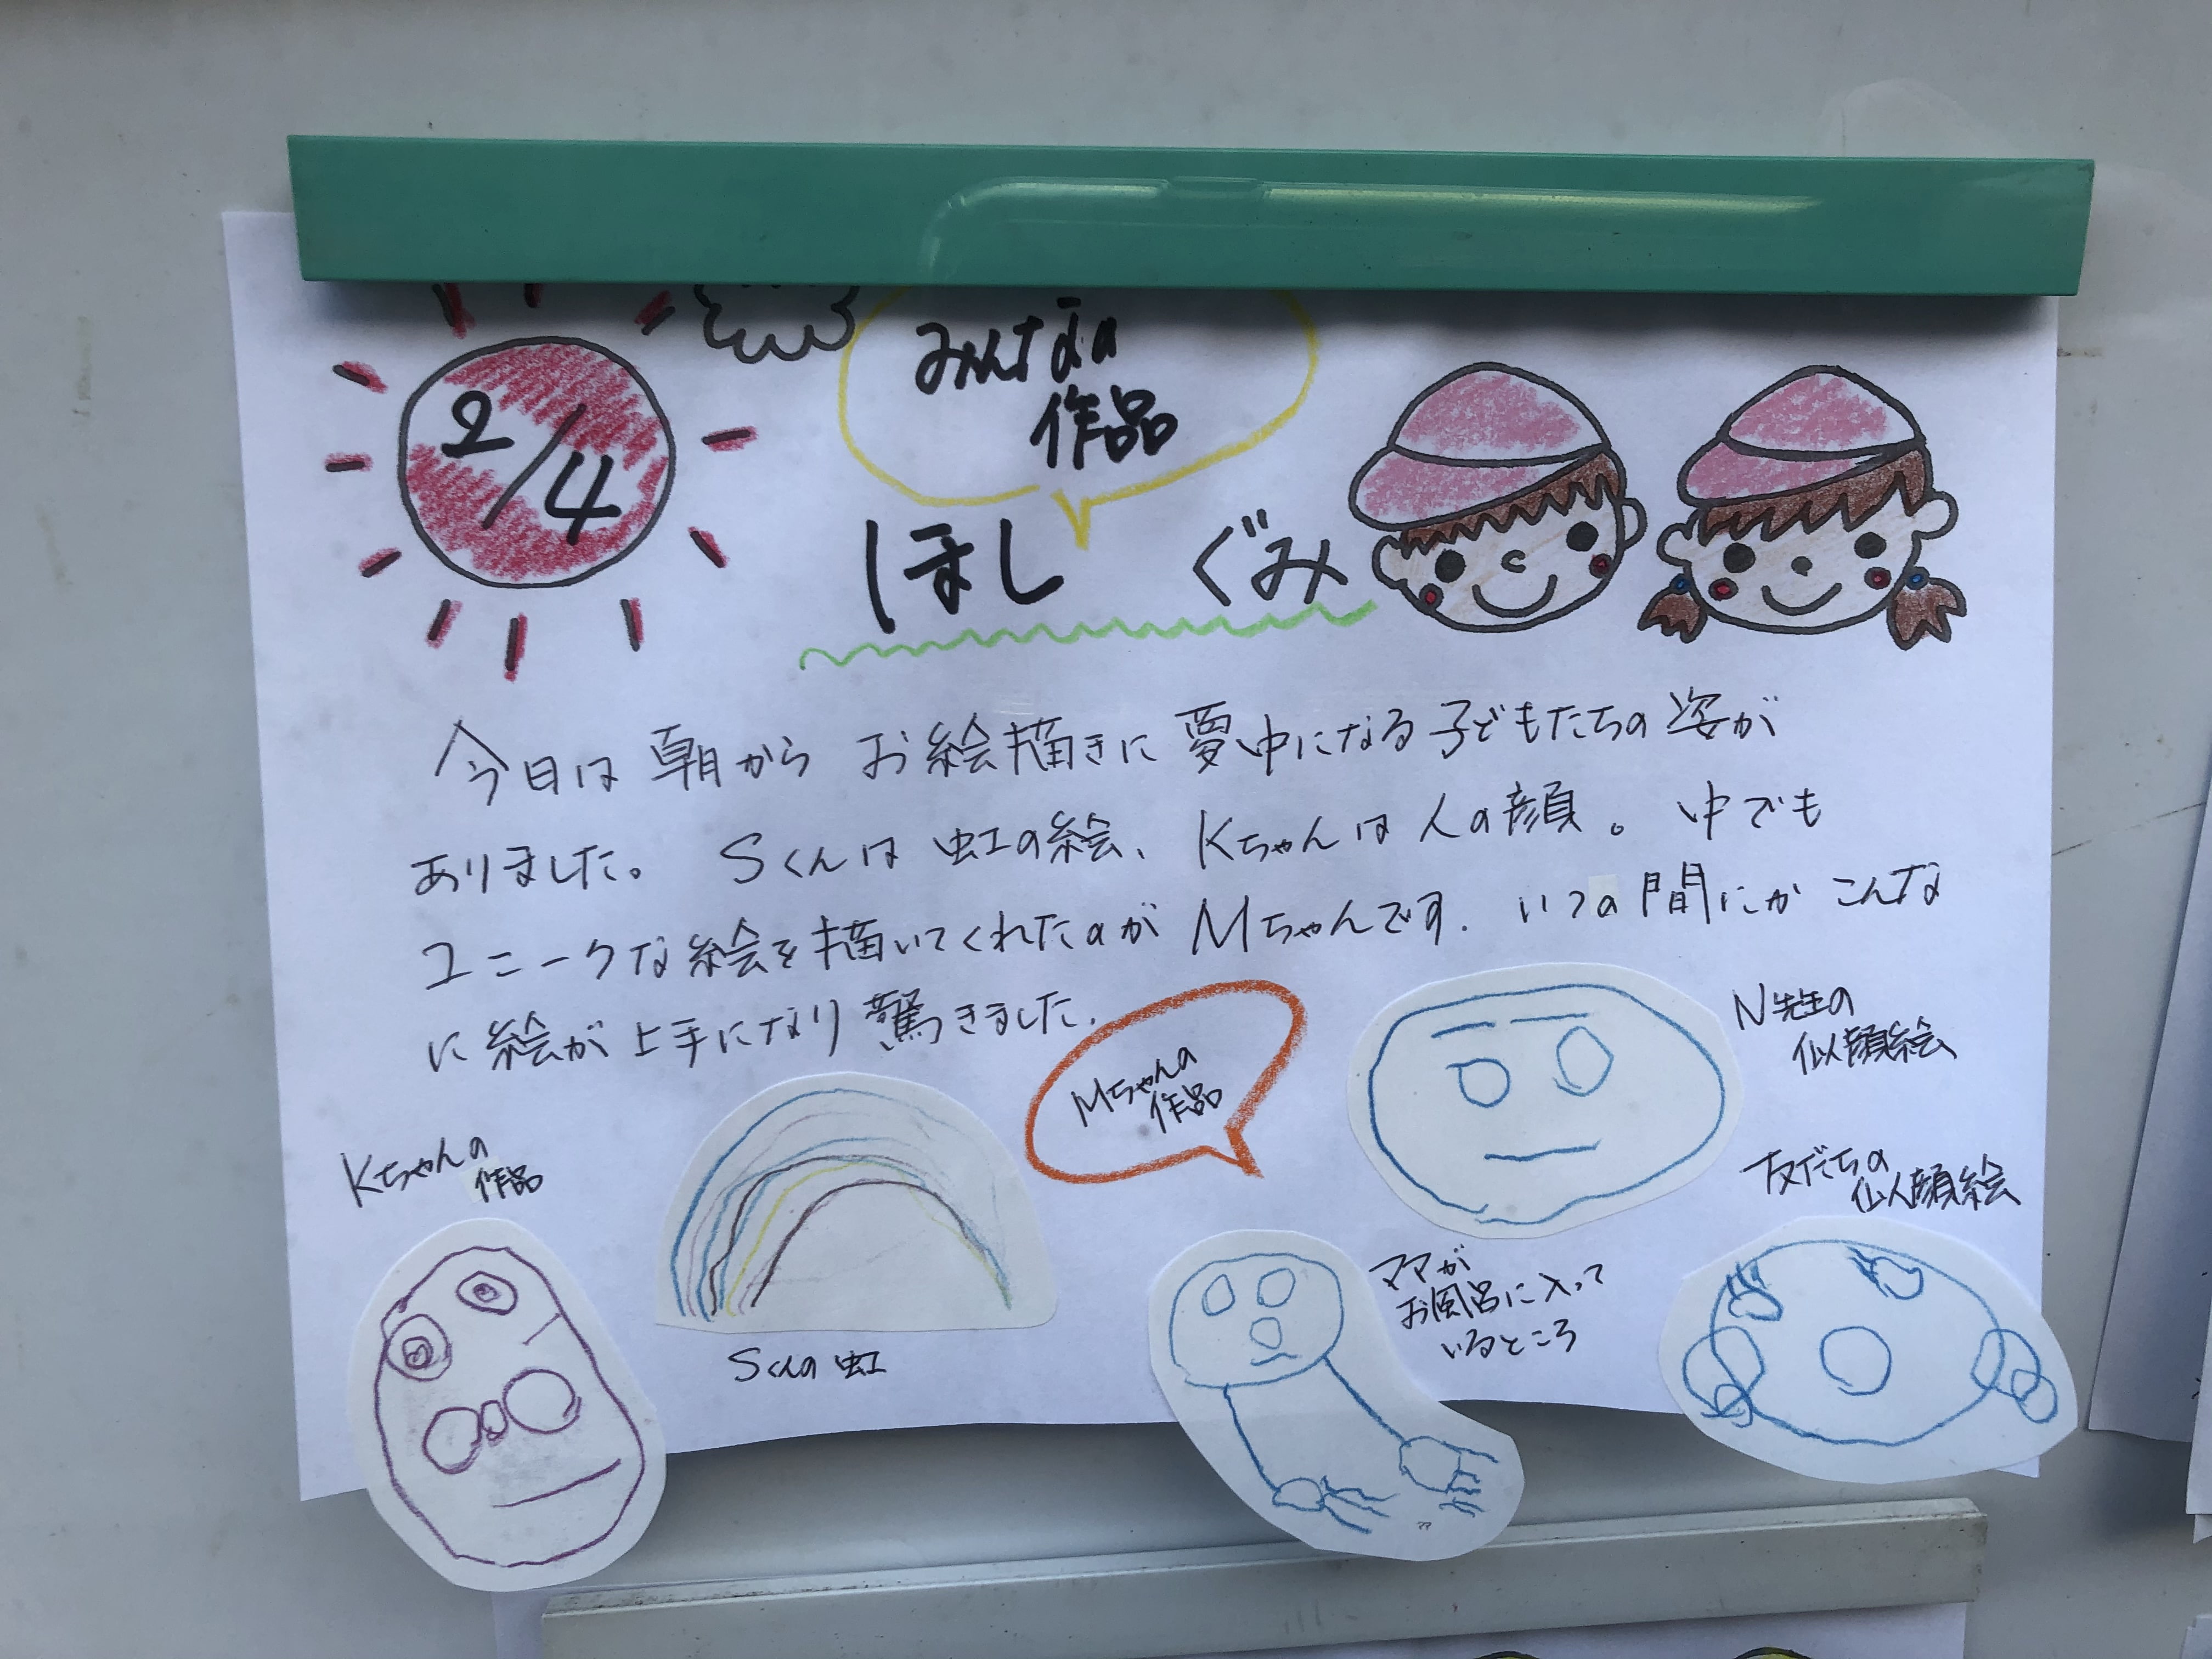 2/4
みんなの
作品
ほし ぐみ
今日は朝から お絵描きに夢中になる子どもたちの姿が
ありました。 Sくんは虹の絵、Kちゃんは人の顔。中でも
ユニークな絵を描いてくれたのがMちゃんです. いつの間にかこんな
に絵が上手になり驚きました.
Mちゃんの
作品
N先生の
似顔絵
Kちゃんの
作品
友だちの
似顔絵
ママが
お風呂に入って
いるところ
Sくんの虹